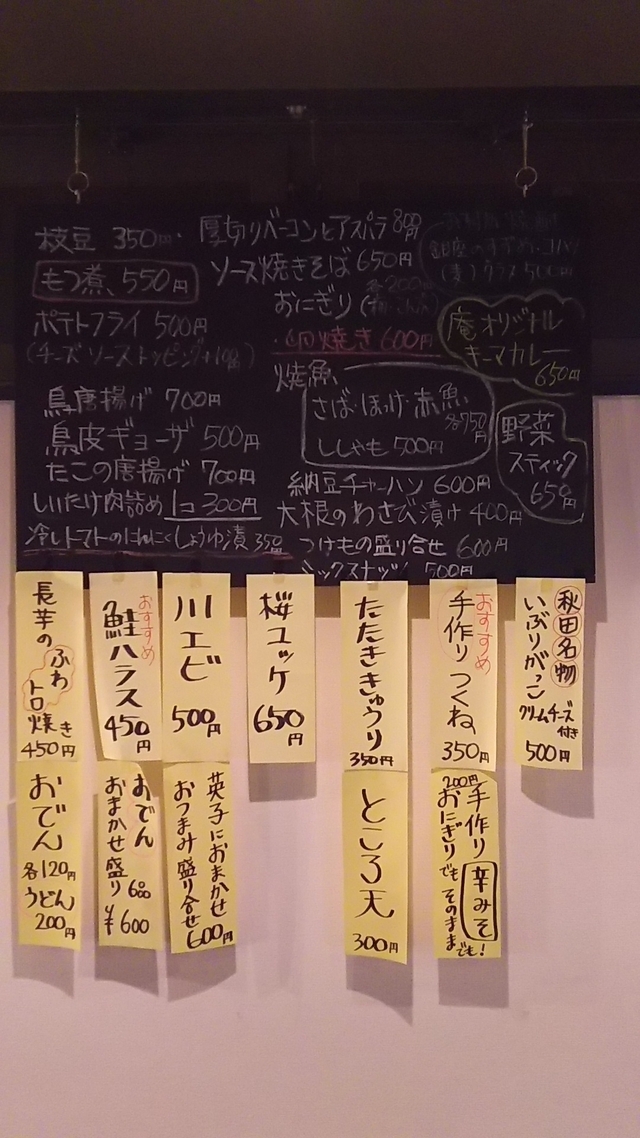 枝豆 350円
もつ煮 550円
ポテトフライ 500円
(チーズソーストッピング
鳥唐揚げ 700円
鳥皮ギョーザ 500円
たこの唐揚げ 700円
しいたけ肉詰め 1コ 300円
冷しトマトのにんにくしょうゆ漬 350円
厚切りベーコンとアスパラ 800円
ソース焼きそば 650円
おにぎり
各200
焼き 600円
焼魚
さば・ほっけ・赤魚
各750円
ししゃも 500円
納豆チャーハン 600円
大根のわさび漬け 400円
つけもの盛り合せ 600円
ミックスナッツ 500円
銀座のすずめ・コハク
(麦) グラス 500円
庵オリジナル
キーマカレー
650円
野菜
スティック
650円
長芋の
ふわ
トロ
焼き
450円
おすすめ
鮭ハラス
450円
川エビ
500円
桜ユッケ
650円
たたききゅうり
350円
おすすめ
手作りつくね
350円
秋田名物
いぶりがっこ
クリームチーズ
付き
500円
おでん
各120円
うどん
200円
おでん
おまかせ盛り
600
¥600
英子におまかせ
おつまみ盛り合せ
600円
ところ天
300円
手作り
辛みそ
200円
おにぎりでもそのままでも!